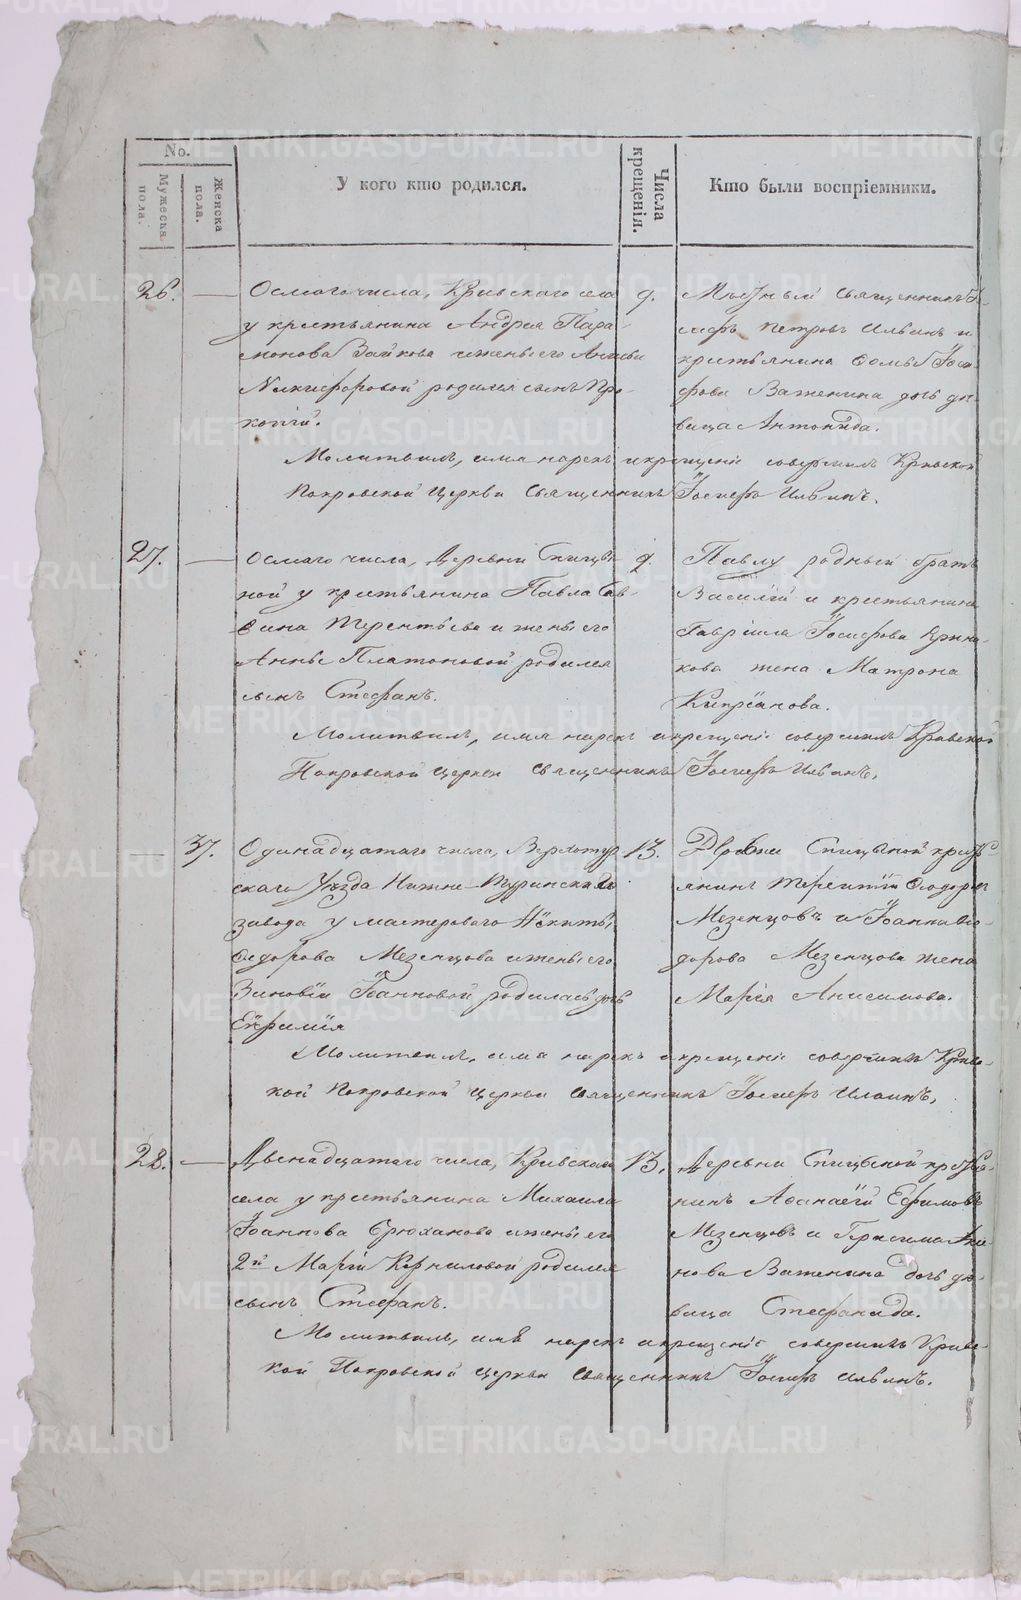 No.
Мужеска пола.
Женска пола.
У кого кто родился.
Числа крещенія.
Кто были воспріемники.
26. Осмаго числа, Кривскаго села
у крестьянина Андрея Пара-
монова Зайкова и жены его
Никифоровой родился сынъ Про-
копій.
9.
Мѣстный священникъ Iо-
сифъ Петровъ Ильинъ и
крестьянина Iоси-
фова Важенина дочь дѣ-
вица Антонида.
Молитвилъ, имя нарекъ и крещеніе совершилъ Кривской
Покровской Церкви Священникъ Iосифъ Ильинъ.
27. Осмаго числа, Деревни Спицы-
ной у крестьянина Павла Сав-
вина Терентьева и жены его
Анны Платоновой родился
сынъ Стефанъ.
9.
Павлу родный братъ
Василій и крестьянина
Гавріила Iосифова
жена Матрона
Кипріанова.
Молитвилъ, имя нарекъ и крещеніе совершилъ Кривской
Покровской Церкви Священникъ Iосифъ Ильинъ.
37. Одинадцатаго числа, Верхотур-
скаго Уѣзда Нижне-Туринскаго
завода у мастероваго Никиты
Ѳедорова Мезенцова и жены его
Зиновіи Iоанновой родилась дочь
Евфимія
13.
Деревни Спицыной кресть-
янинъ Терентій Ѳеодоровъ
Мезенцовъ и Iоанна Ѳео-
дорова Мезенцова жена
Марія Анисимова.
Молитвилъ, имя нарекъ и крещеніе совершилъ Кривс-
кой Покровской Церкви Священникъ Iосифъ Ильинъ.
28. Двенадцатаго числа, Кривскаго
села у крестьянина Михаила
Iоаннова Брюханова и жены его
2й Маріи Корниловой родился
сынъ Стефанъ.
13.
Деревни Спицыной кресть-
янинъ Аѳанасій Ефимовъ
Мезенцовъ и Герасима
Важенина дочь дѣ-
вица Стефанида.
Молитвилъ, имя нарекъ и крещеніе совершилъ Кривс-
кой Покровской Церкви Священникъ Iосифъ Ильинъ.
METRIKI.GASO-URAL.RU